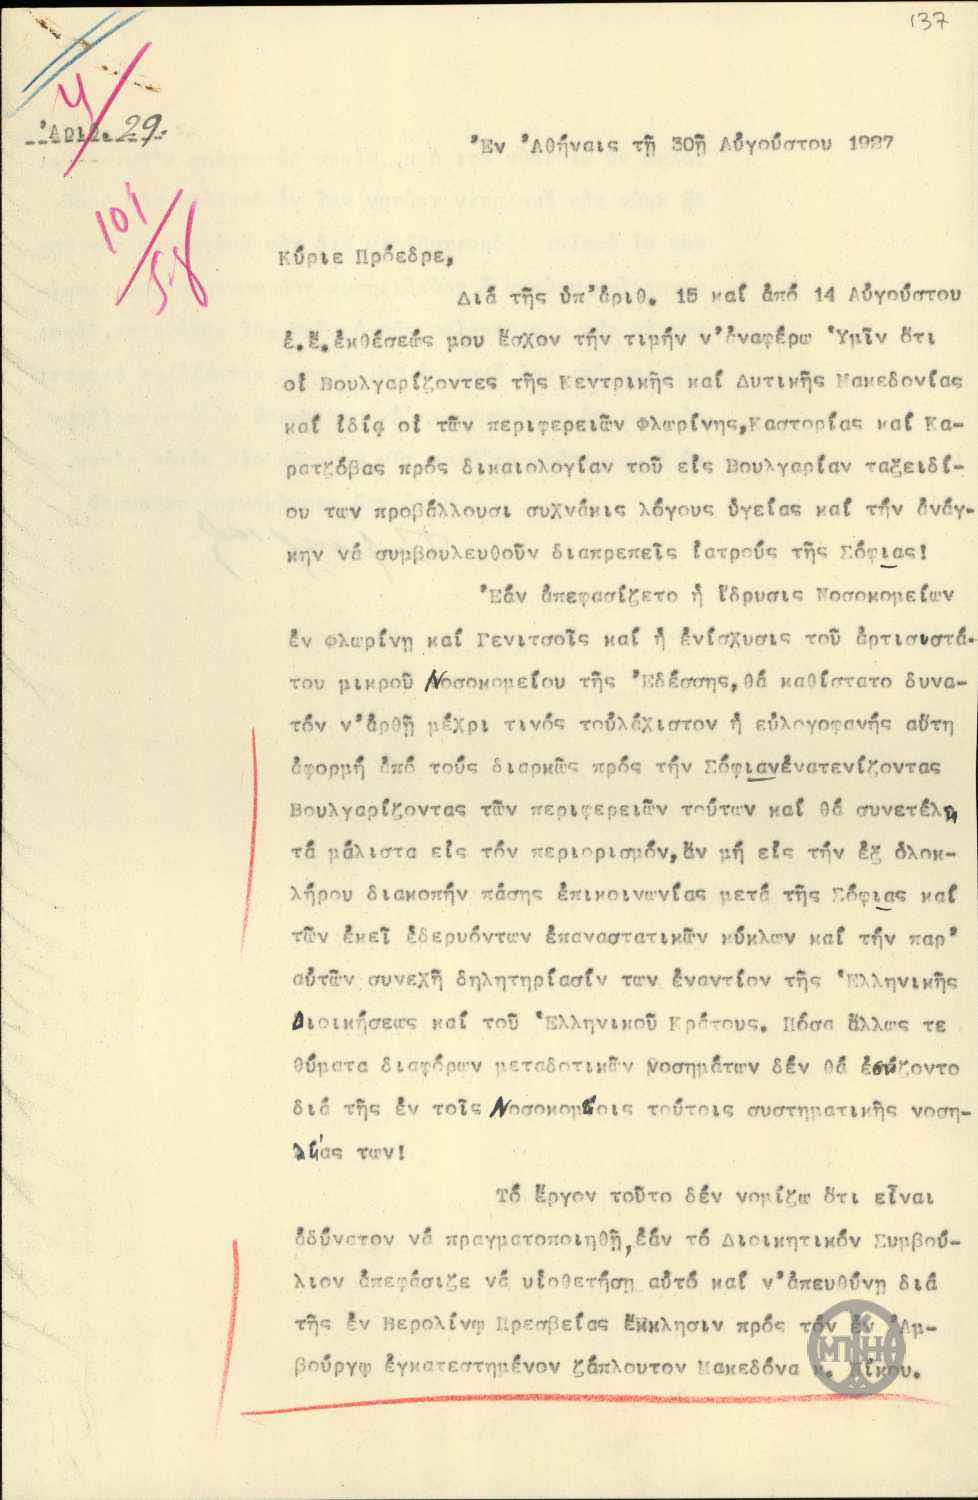 137
Ἀριθ. 29.
4
101/58
Ἐν Ἀθήναις τῇ 30ῇ Αὐγούστου 1927
Κύριε Πρόεδρε,
Διά τῆς ὑπ' ἀριθ. 15 καί ἀπό 14 Αὐγούστου
ἐ.ἔ. ἐκθέσεώς μου ἔσχον τήν τιμήν ν' ἀναφέρω Ὑμῖν ὅτι
οἱ Βουλγαρίζοντες τῆς Κεντρικῆς καί Δυτικῆς Μακεδονίας
καί ἰδίᾳ οἱ τῶν περιφερειῶν Φλωρίνης, Καστορίας καί Κα-
ρατζόβας πρός δικαιολογίαν τοῦ εἰς Βουλγαρίαν ταξειδί-
ου των προβάλλουσι συχνάκις λόγους ὑγείας καί τήν ἀνάγ-
κην νά συμβουλευθοῦν διαπρεπεῖς ἰατρούς τῆς Σόφιας!
Ἐάν ἀπεφασίζετο ἡ ἵδρυσις Νοσοκομείων
ἐν Φλωρίνῃ καί Γενιτσοῖς καί ἡ ἐνίσχυσις τοῦ ἀρτισυστά-
του μικροῦ Νοσοκομείου τῆς Ἐδέσσης, θά καθίστατο δυνα-
τόν ν' ἀρθῇ μέχρι τινός τοὐλάχιστον ἡ εὐλογοφανής αὕτη
ἀφορμή ἀπό τούς διαρκῶς πρός τήν Σόφιαν ἐνατενίζοντας
Βουλγαρίζοντας τῶν περιφερειῶν τούτων καί θά συνετέλει
τά μάλιστα εἰς τόν περιορισμόν, ἄν μή εἰς τήν ἐξ ὁλοκ-
λήρου διακοπήν πάσης ἐπικοινωνίας μετά τῆς Σόφιας καί
τῶν ἐκεῖ ἑδερυόντων ἐπαναστατικῶν κύκλων καί τήν παρ'
αὐτῶν συνεχῆ δηλητηρίασίν των ἐναντίον τῆς Ἑλληνικῆς
Διοικήσεως καί τοῦ Ἑλληνικοῦ Κράτους. Πόσα ἄλλως τε
θύματα διαφόρων μεταδοτικῶν νοσημάτων δέν θά ἐσώζοντο
διά τῆς ἐν τοῖς Νοσοκομείοις τούτοις συστηματικῆς νοση-
λείας των!
Τό ἔργον τοῦτο δέν νομίζω ὅτι εἶναι
ἀδύνατον νά πραγματοποιηθῇ, ἐάν τό Διοικητικόν Συμβού-
λιον ἀπεφάσιζε νά υἱοθετήσῃ αὐτό καί ν' ἀπευθύνῃ διά
τῆς ἐν Βερολίνῳ Πρεσβείας ἔκκλησιν πρός τόν ἐν Ἁμ-
βούργῳ ἐγκατεστημένον ζάπλουτον Μακεδόνα κ.